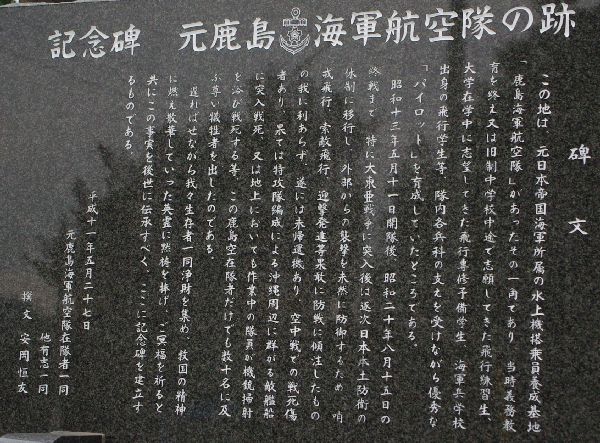 記念碑 元鹿島海軍航空隊の跡
碑文
この地は、元日本帝国海軍所属の水上機搭乗員養成基地
「鹿島海軍航空隊」があったその一角であり、当時義務教
育を終え又は旧制中学校中途で志願してきた飛行練習生、
大学在学中に志望してきた飛行専修予備学生、海軍兵学校
出身の飛行学生等、隊内各兵科の支えを受けながら優秀な
「パイロット」を育成していたところである。
昭和十三年五月十一日開隊後、昭和二十年八月十五日の
終戦まで、特に大東亜戦争に突入後は逐次日本本土防衛の
体制に移行し、外部からの襲撃を未然に防御するため、哨
戒飛行、索敵飛行、迎撃発進等果敢に防戦に傾注したもの
の我に利あらず、遂には未帰還機あり、空中戦での戦死傷
者あり、果ては特攻隊編成による沖縄周辺に群がる敵艦船
に突入戦死、又は地上においても作業中の隊員が機銃掃射
を浴び戦死する等、この鹿島空在隊者だけでも数十名に及
ぶ尊い犠牲者を出したのである。
遅ればせながら我々生存者一同浄財を集め、救国の精神
に燃え散華していった英霊に黙祷を捧げ、ご冥福を祈ると
共にこの事実を後世に伝承すべく、ここに記念碑を建立す
るものである。
平成十一年五月二十七日
元鹿島海軍航空隊在隊者一同
他有志一同
撰文 安岡恒友